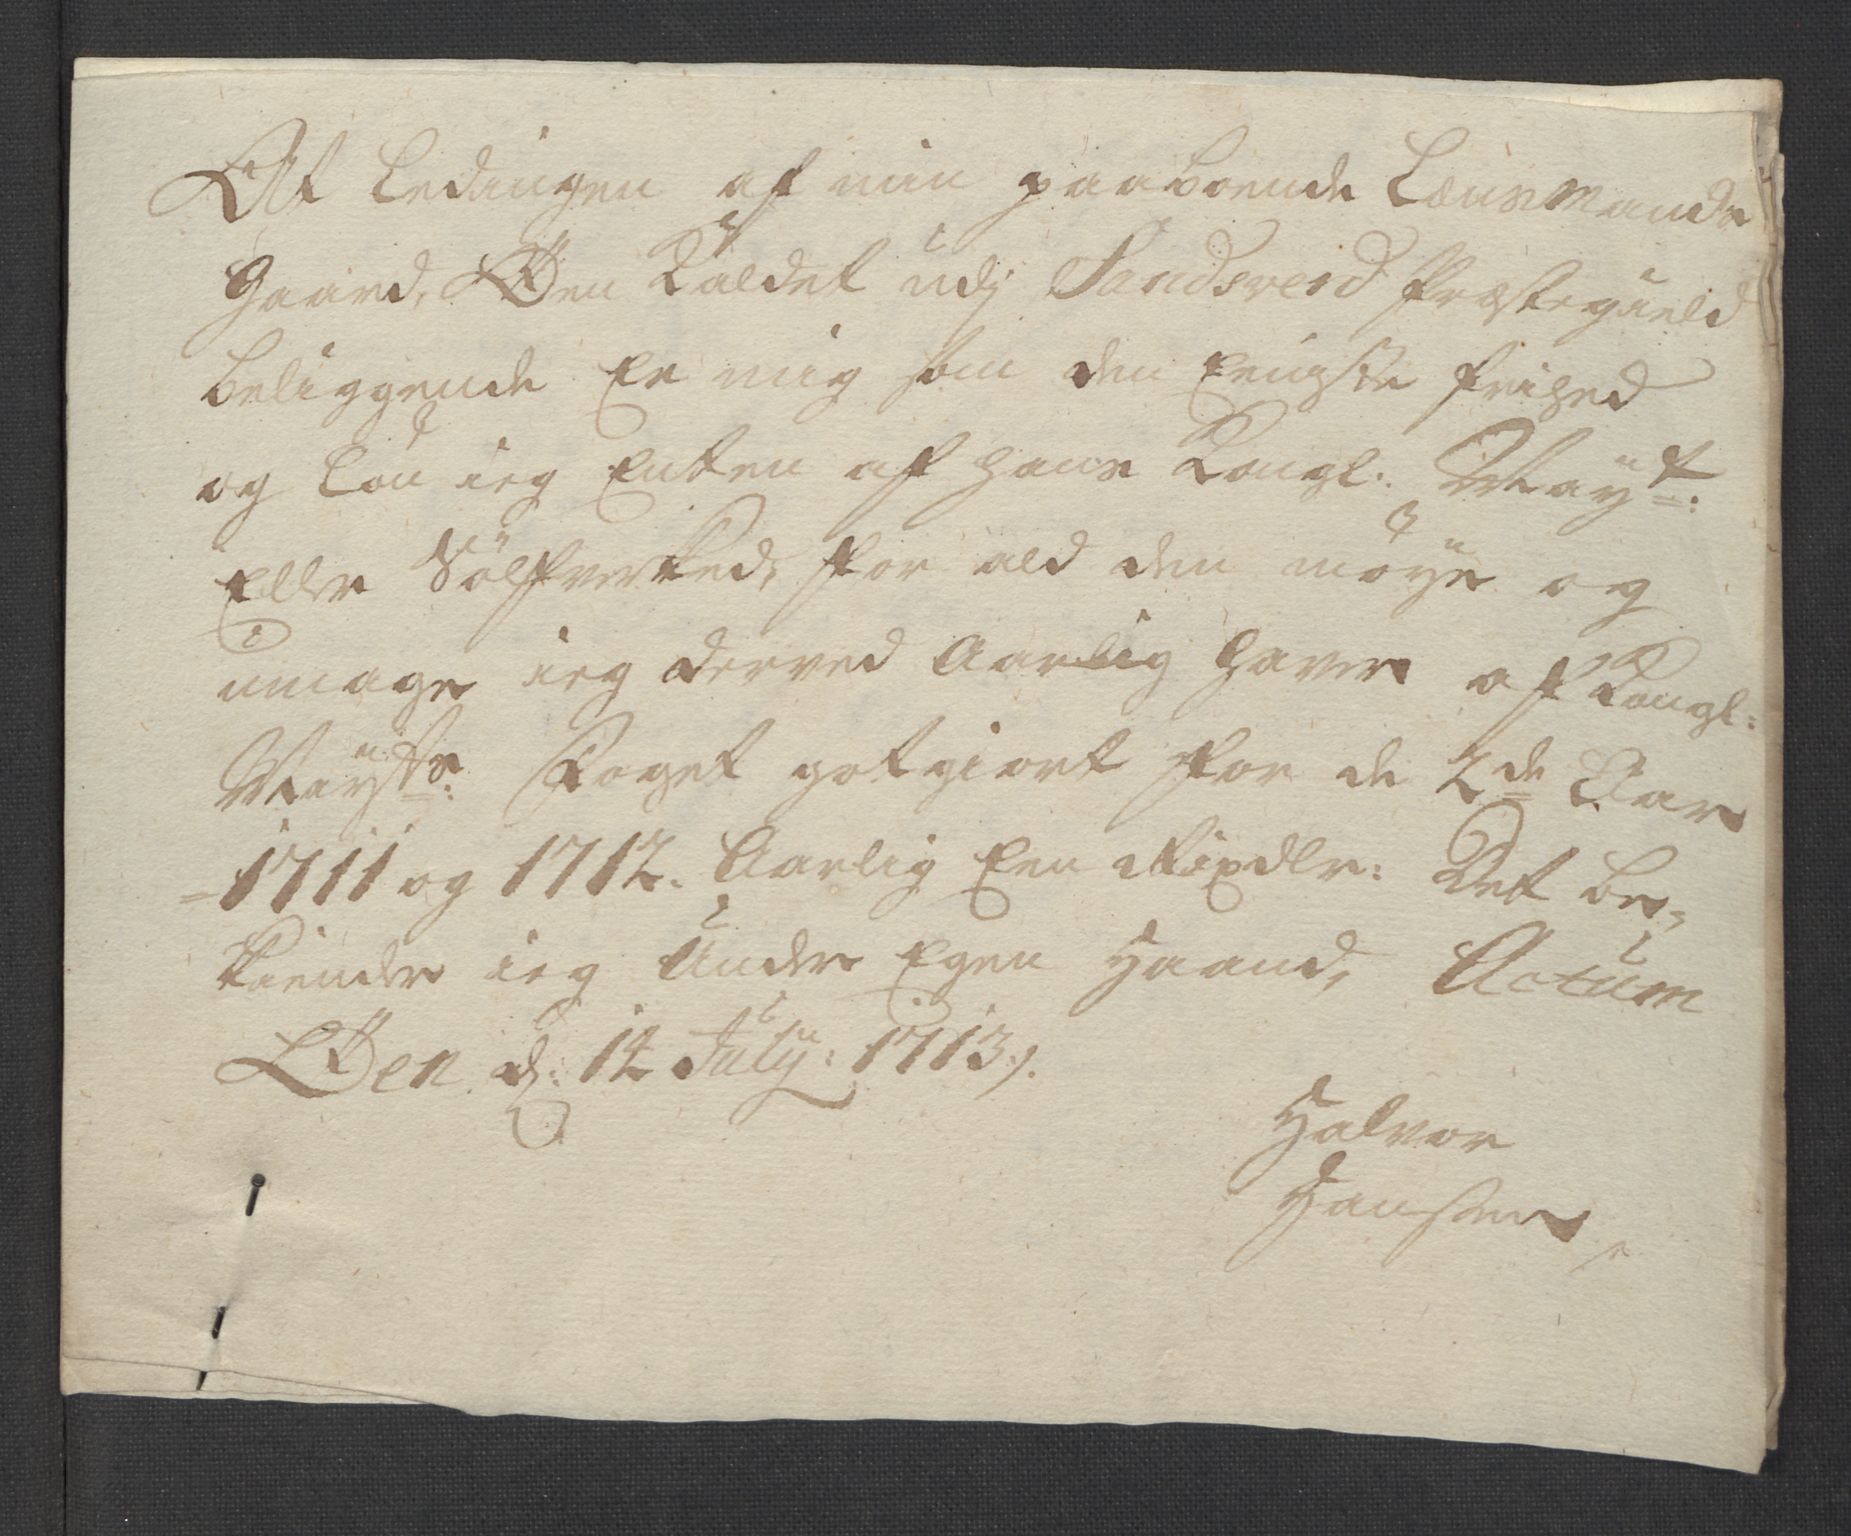 At Ledingen af min paaboende Lænsmands
Gaard, Øen Kaldet udj Sandsverd Præstegield
beliggende Er mig som den Enigste frihed
og Lön ieg Enten af hans Kongl: Mayt:
Eller Sölfverked, for ald den möye og
umage ieg derved Aarlig haver af Kongl:
Mayts: Foget gotgiort for de 2de Aar
1711 og 1712. Aarlig Een Rixdlr: Det be-
kiender ieg Under Egen Haand, Actum
Øen d: 14 July: 1713.
Halvor
Hansen